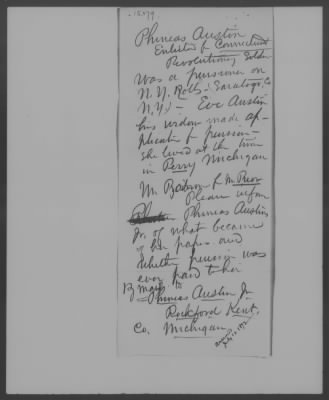 15579
Phineas Austin
Enlisted fr Connecticut
Revolutionary Soldier
was a pensioner on
N.Y. Rolls - Saratoga Co
N.Y. - Eve Austin
his widow made ap-
plication for pension -
She lived at the time
in Perry Michigan
Mr for Mr Prior
Please inform
Phineas Austin
Jr. of what became
of her papers and
whether pension was
ever paid to her
By mail to
Phineas Austin Jr
Rockford Kent,
Co. Michigan